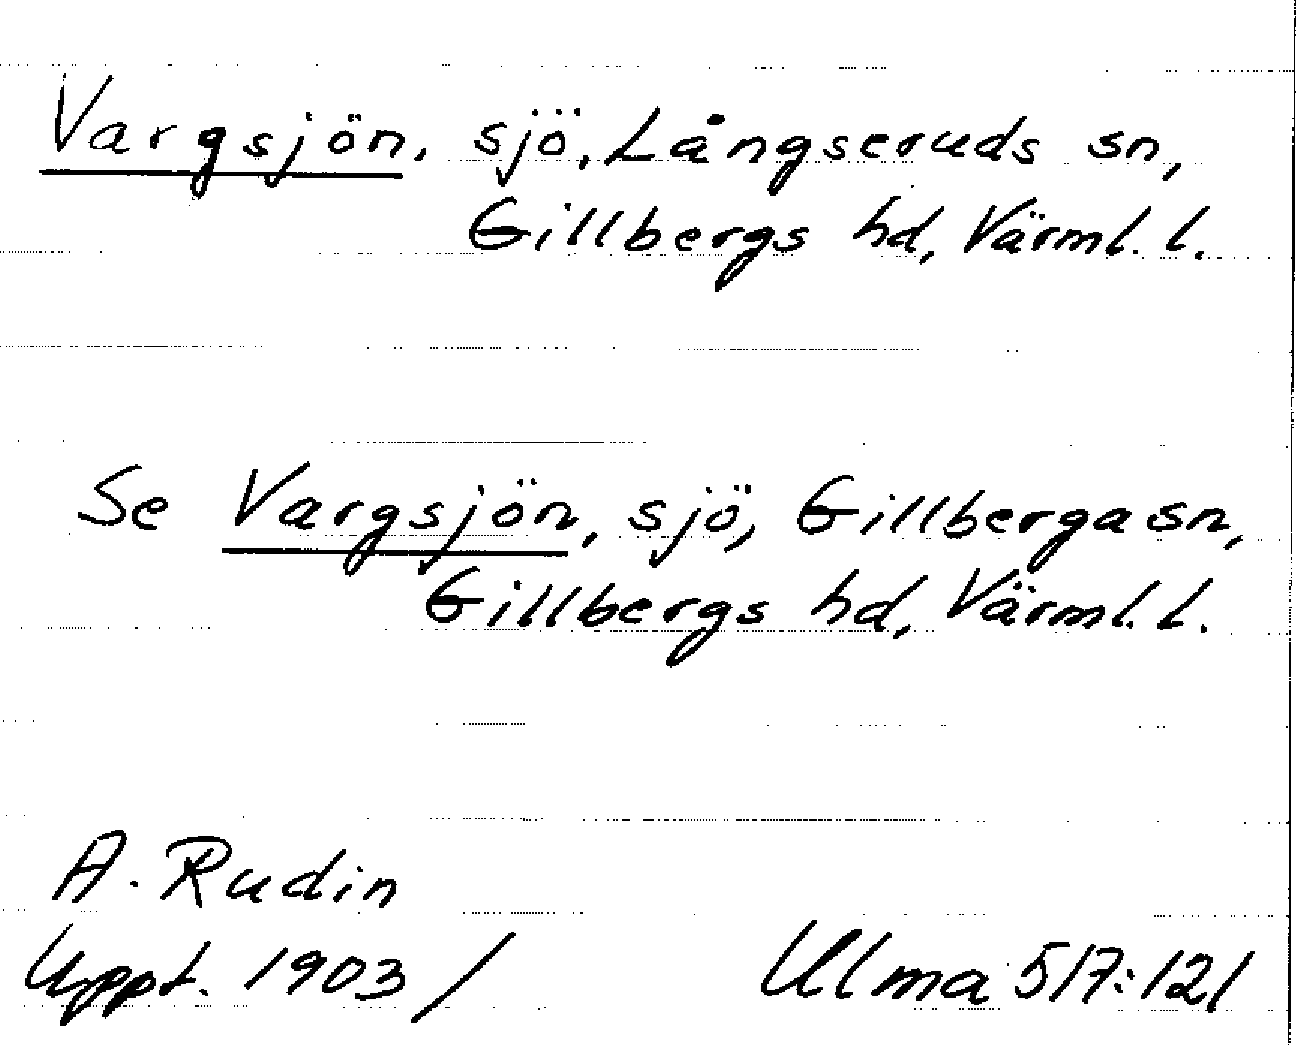 Vargsjön, sjö, Långseruds sn,
Gillbergs hd, Värml. l.
Se Vargsjön, sjö, Gillberga sn,
Gillbergs hd, Värml. l.
A. Rudin
Uppt. 1903 /
Ulma 517:121